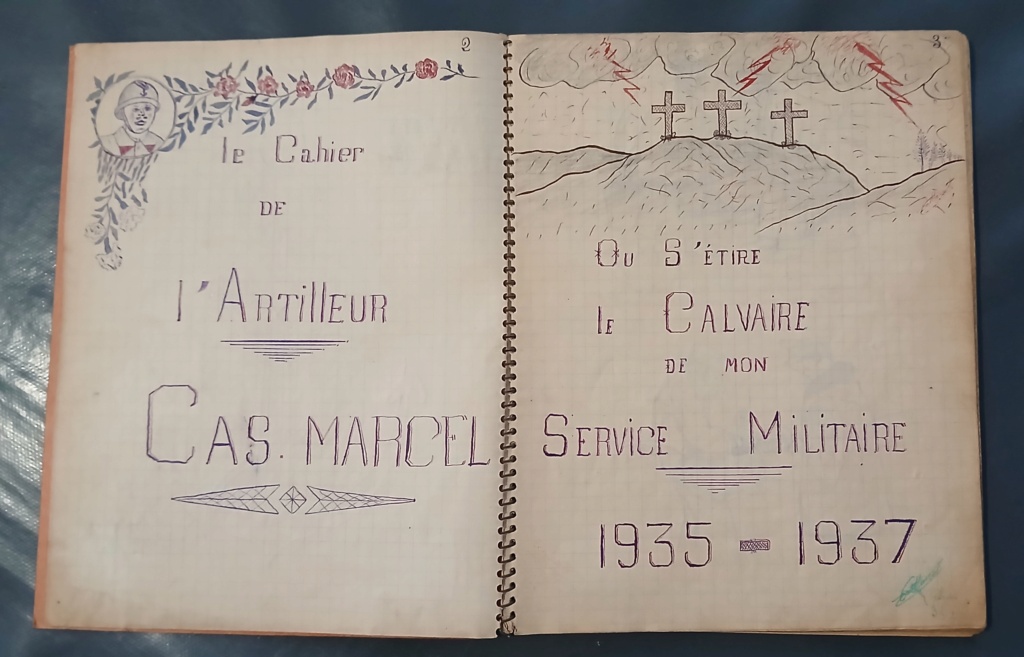 2
le Cahier
DE
l'ARTillEUR
CAS. MARCEL
3
OU S'ÉTIRE
lE CALVAIRE
DE MON
SERVICE MILITAIRE
1935 - 1937